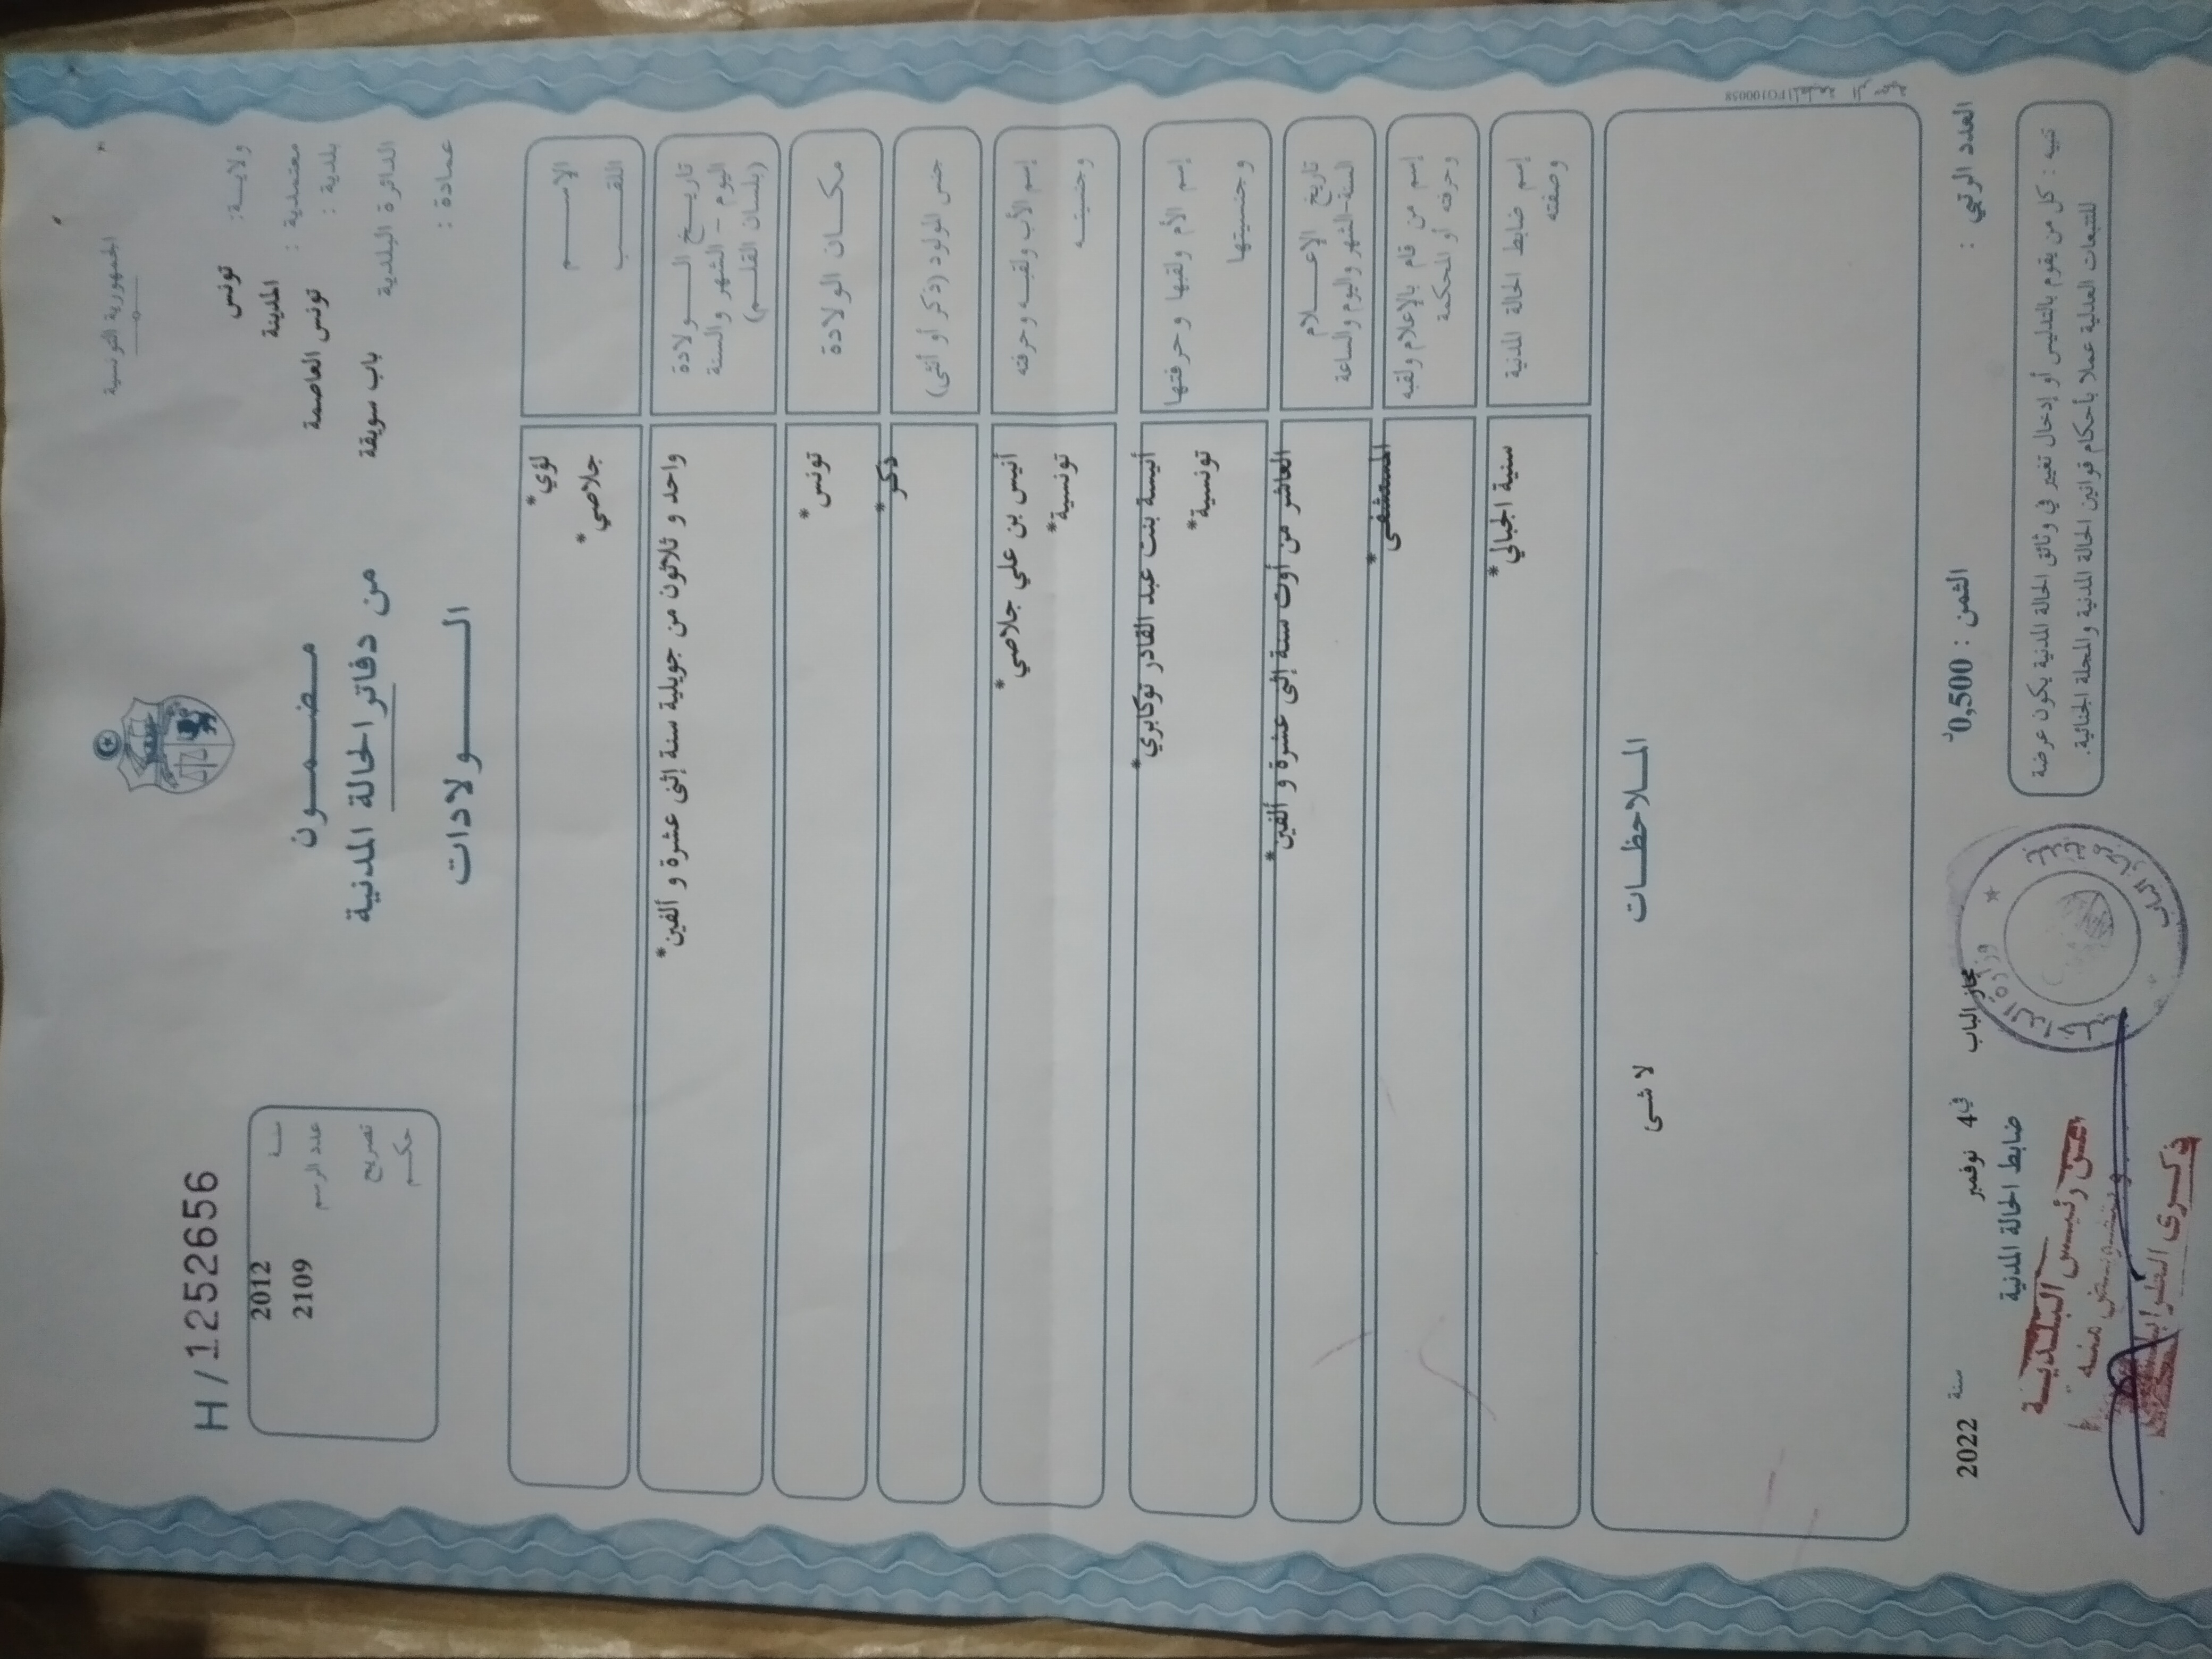 الجمهورية التونسية
H / 1252656
ولاية: تونس
معتمدية : المدينة
بلدية : تونس العاصمة
الدائرة البلدية باب سويقة
عمادة :
مضمون
من دفاتر الحالة المدنية
الولادات
سنة 2012
عدد الرسم 2109
تصريح
حكم
الاسم لؤي*
اللقب جلاصي*
تاريخ الولادة واحد و ثلاثون من جويلية سنة إثنى عشرة و ألفين*
اليوم – الشهر والسنة
(بلسان القلم)
مكان الولادة تونس*
جنس المولود (ذكر أو أنثى) ذكر*
إسم الأب ولقبه وحرفته أنيس بن علي جلاصي*
وجنسيته تونسية*
إسم الأم ولقبها وحرفتها أنيسة بنت عبد القادر توكابري*
وجنسيتها تونسية*
تاريخ الإعلام العاشر من أوت سنة إثنى عشرة و ألفين*
السنة-الشهر واليوم والساعة
إسم من قام بالإعلام ولقبه المستشفى*
وحرفته أو المحكمة
إسم ضابط الحالة المدنية سنية الجبالي*
وصفته
الملاحظات
لا شى
العدد الرتبي :
الثمن : 0,500د
مجاز الباب في 4 نوفمبر سنة 2022
ضابط الحالة المدنية
تنبيه : كل من يقوم بالتدليس أو إدخال تغيير في وثائق الحالة المدنية يكون عرضة
للتتبعات العدلية عملا بأحكام قوانين الحالة المدنية والمجلة الجنائية.
عن رئيس البلدية
وبتفويض منه